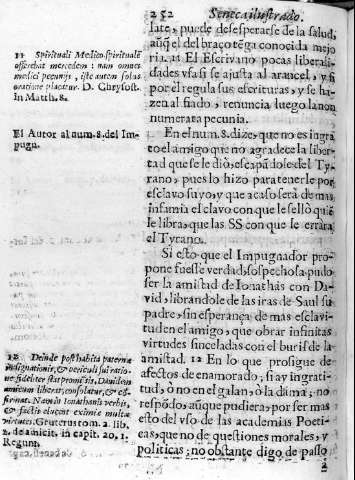 252 Seneca ilustrado.
late, puede desesperarse de la salud,
aũq̃ el del braço tẽga conocida mejo
ria. 11 El Escrivano pocas liberali-
dades vsa si se ajusta al arancel, y si
por el regula sus escrituras, y se ha-
zen al fiado, renuncia luego la non
numerata pecunia.
En el num. 8. dize, que no es ingra
to el amigo que no agradece la liber-
tad que se le diò, escapãdole del Ty-
rano, pues lo hizo para tenerle por
esclavo suyo, y que acaso serà de mas
infamia el clavo con que le sellò quiẽ
le libra, que las SS con que le erràra
el Tyrano.
Si esto que el Impugnador pro-
pone fuesse verdad, sospechosa pudo
ser la amistad de Ionathàs con Da-
vid, librandole de las iras de Saul su
padre, sin esperança de mas esclavi-
tud en el amigo, que obrar infinitas
virtudes sinceladas con el buris de la
amistad. 12 En lo que prosigue de
afectos de enamorado; si ay ingrati-
tud, ò no en el galan, ò la dama; no
respõdo, aũque pudiera, por ser mas
esto del vso de las academias Poeti-
cas, que no de questiones morales, y
politicas; no obstante digo de passo
2
11 Spirituali Medico spirituale
offerebat mercedem: nam omnes
medici pecunijs, iste autem solas
oratione placatur. D. Chrysost.
in Matth. 8.
El Autor al num. 8. del Im-
pugn.
12 Deinde posthabita paterna
indignationis, & periculi sui ratio-
ne fideliter stat promissis, Davidem
amicum liberat, consolatur, & cõ-
firmat. Nam ibi Ionathanis verbis,
& factis elucent eximiæ multæ
virtutes. Gruterus tom. 2. lib.
2. de amicit. in capit. 20. 1.
Regum.